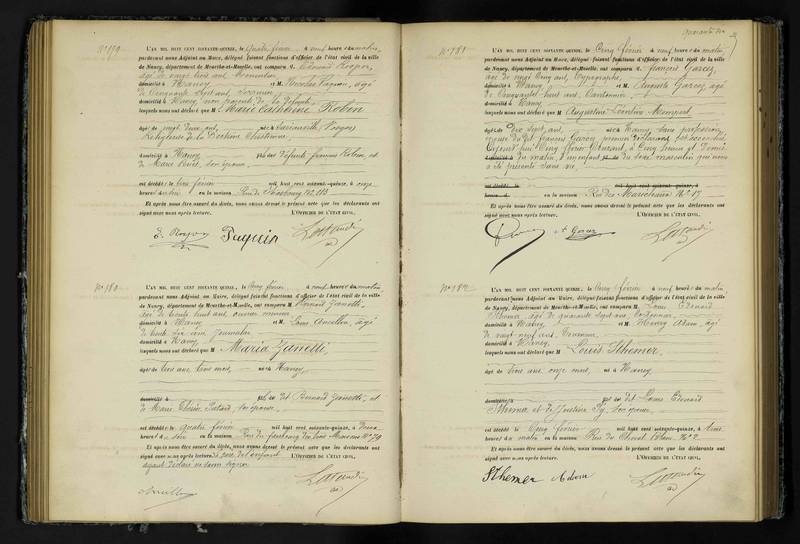 N° 179
L'AN MIL HUIT CENT SOIXANTE-QUINZE, le quatre février à neuf heures du matin,
pardevant nous Adjoint au Maire, délégué faisant fonctions d'officier de l'état civil de la ville
de Nancy, département de Meurthe-et-Moselle, ont comparu M. Edouard
âgé de vingt trois ans
domicilié à Nancy et M. Nicolas Paquin, âgé
de Cinquante sept ans,
domicilié à Nancy, non parents de la défunte
lesquels nous ont déclaré que M Marie Catherine Robin
âgée de vingt deux ans, née à (Vosges)
Religieuse de la Doctrine Chrétienne
domiciliée à Nancy fille des défunts Robin, et
de Marie son épouse
est décédée le trois février mil huit cent soixante-quinze, à onze
heures du soir en la maison Rue de Strasbourg
Et après nous être assuré du décès, nous avons dressé le présent acte que les déclarants ont
signé avec nous après lecture. L'OFFICIER DE L'ÉTAT CIVIL,
Paquin
N° 180
L'AN MIL HUIT CENT SOIXANTE-QUINZE, le Cinq février à neuf heures du matin
pardevant nous Adjoint au Maire, délégué faisant fonctions d'officier de l'état civil de la ville
de Nancy, département de Meurthe-et-Moselle, ont comparu M. Bernard Zanetti,
âgé de trente huit ans, ouvrier mineur
domicilié à Nancy et M. Louis Ancillon, âgé
de trente six ans, Journalier
domicilié à Nancy
lesquels nous ont déclaré que M Maria Zanetti,
âgée de trois ans trois mois, née à Nancy,
domiciliée à fille de dit Bernard Zanetti, et
de Marie Thérèse son épouse
est décédée le quatre février mil huit cent soixante-quinze, à deux
heures du soir en la maison Rue du faubourg des trois Maisons N° 79
Et après nous être assuré du décès, nous avons dressé le présent acte que les déclarants ont
signé avec nous après lecture, le père de l'enfant L'OFFICIER DE L'ÉTAT CIVIL,
ayant déclaré ne savoir signer
N° 181
L'AN MIL HUIT CENT SOIXANTE-QUINZE, le Cinq février à neuf heures du matin
pardevant nous Adjoint au Maire, délégué faisant fonctions d'officier de l'état civil de la ville
de Nancy, département de Meurthe-et-Moselle, ont comparu M. François Garcy,
âgé de vingt Cinq ans, Typographe,
domicilié à Nancy et M. Auguste Garcy, âgé
de Cinquante huit ans, Cantonnier
domicilié à Nancy
lesquels nous ont déclaré que M Augustine
âgée de dix sept ans, née à Nancy, sans profession,
épouse de dit François Garcy premier déclarant est accouchée
Cejourd'hui Cinq février Courant, à Cinq heures et demie
du matin, d'un enfant du sexe masculin qui nous
a été présenté sans vie
est décédé le mil huit cent soixante-quinze, à
heures d en la maison Rue des Maréchaux N° 17
Et après nous être assuré du décès, nous avons dressé le présent acte que les déclarants ont
signé avec nous après lecture. L'OFFICIER DE L'ÉTAT CIVIL,
N° 182
L'AN MIL HUIT CENT SOIXANTE-QUINZE, le Cinq février à neuf heures du matin
pardevant nous Adjoint au Maire, délégué faisant fonctions d'officier de l'état civil de la ville
de Nancy, département de Meurthe-et-Moselle, ont comparu M. Louis Edouard
Sthemer, âgé de quarante sept ans, Cordonnier,
domicilié à Nancy et M. Henry Adam, âgé
de vingt neuf ans,
domicilié à Nancy
lesquels nous ont déclaré que M Louis Sthemer,
âgé de trois ans onze mois, né à Nancy,
domicilié à fils de dit Louis Edouard
Sthemer et de Justine son épouse
est décédé le Cinq février mil huit cent soixante-quinze, à
heures du matin en la maison Rue du Cheval Blanc N° 2
Et après nous être assuré du décès, nous avons dressé le présent acte que les déclarants ont
signé avec nous après lecture. L'OFFICIER DE L'ÉTAT CIVIL,
Sthemer Adam